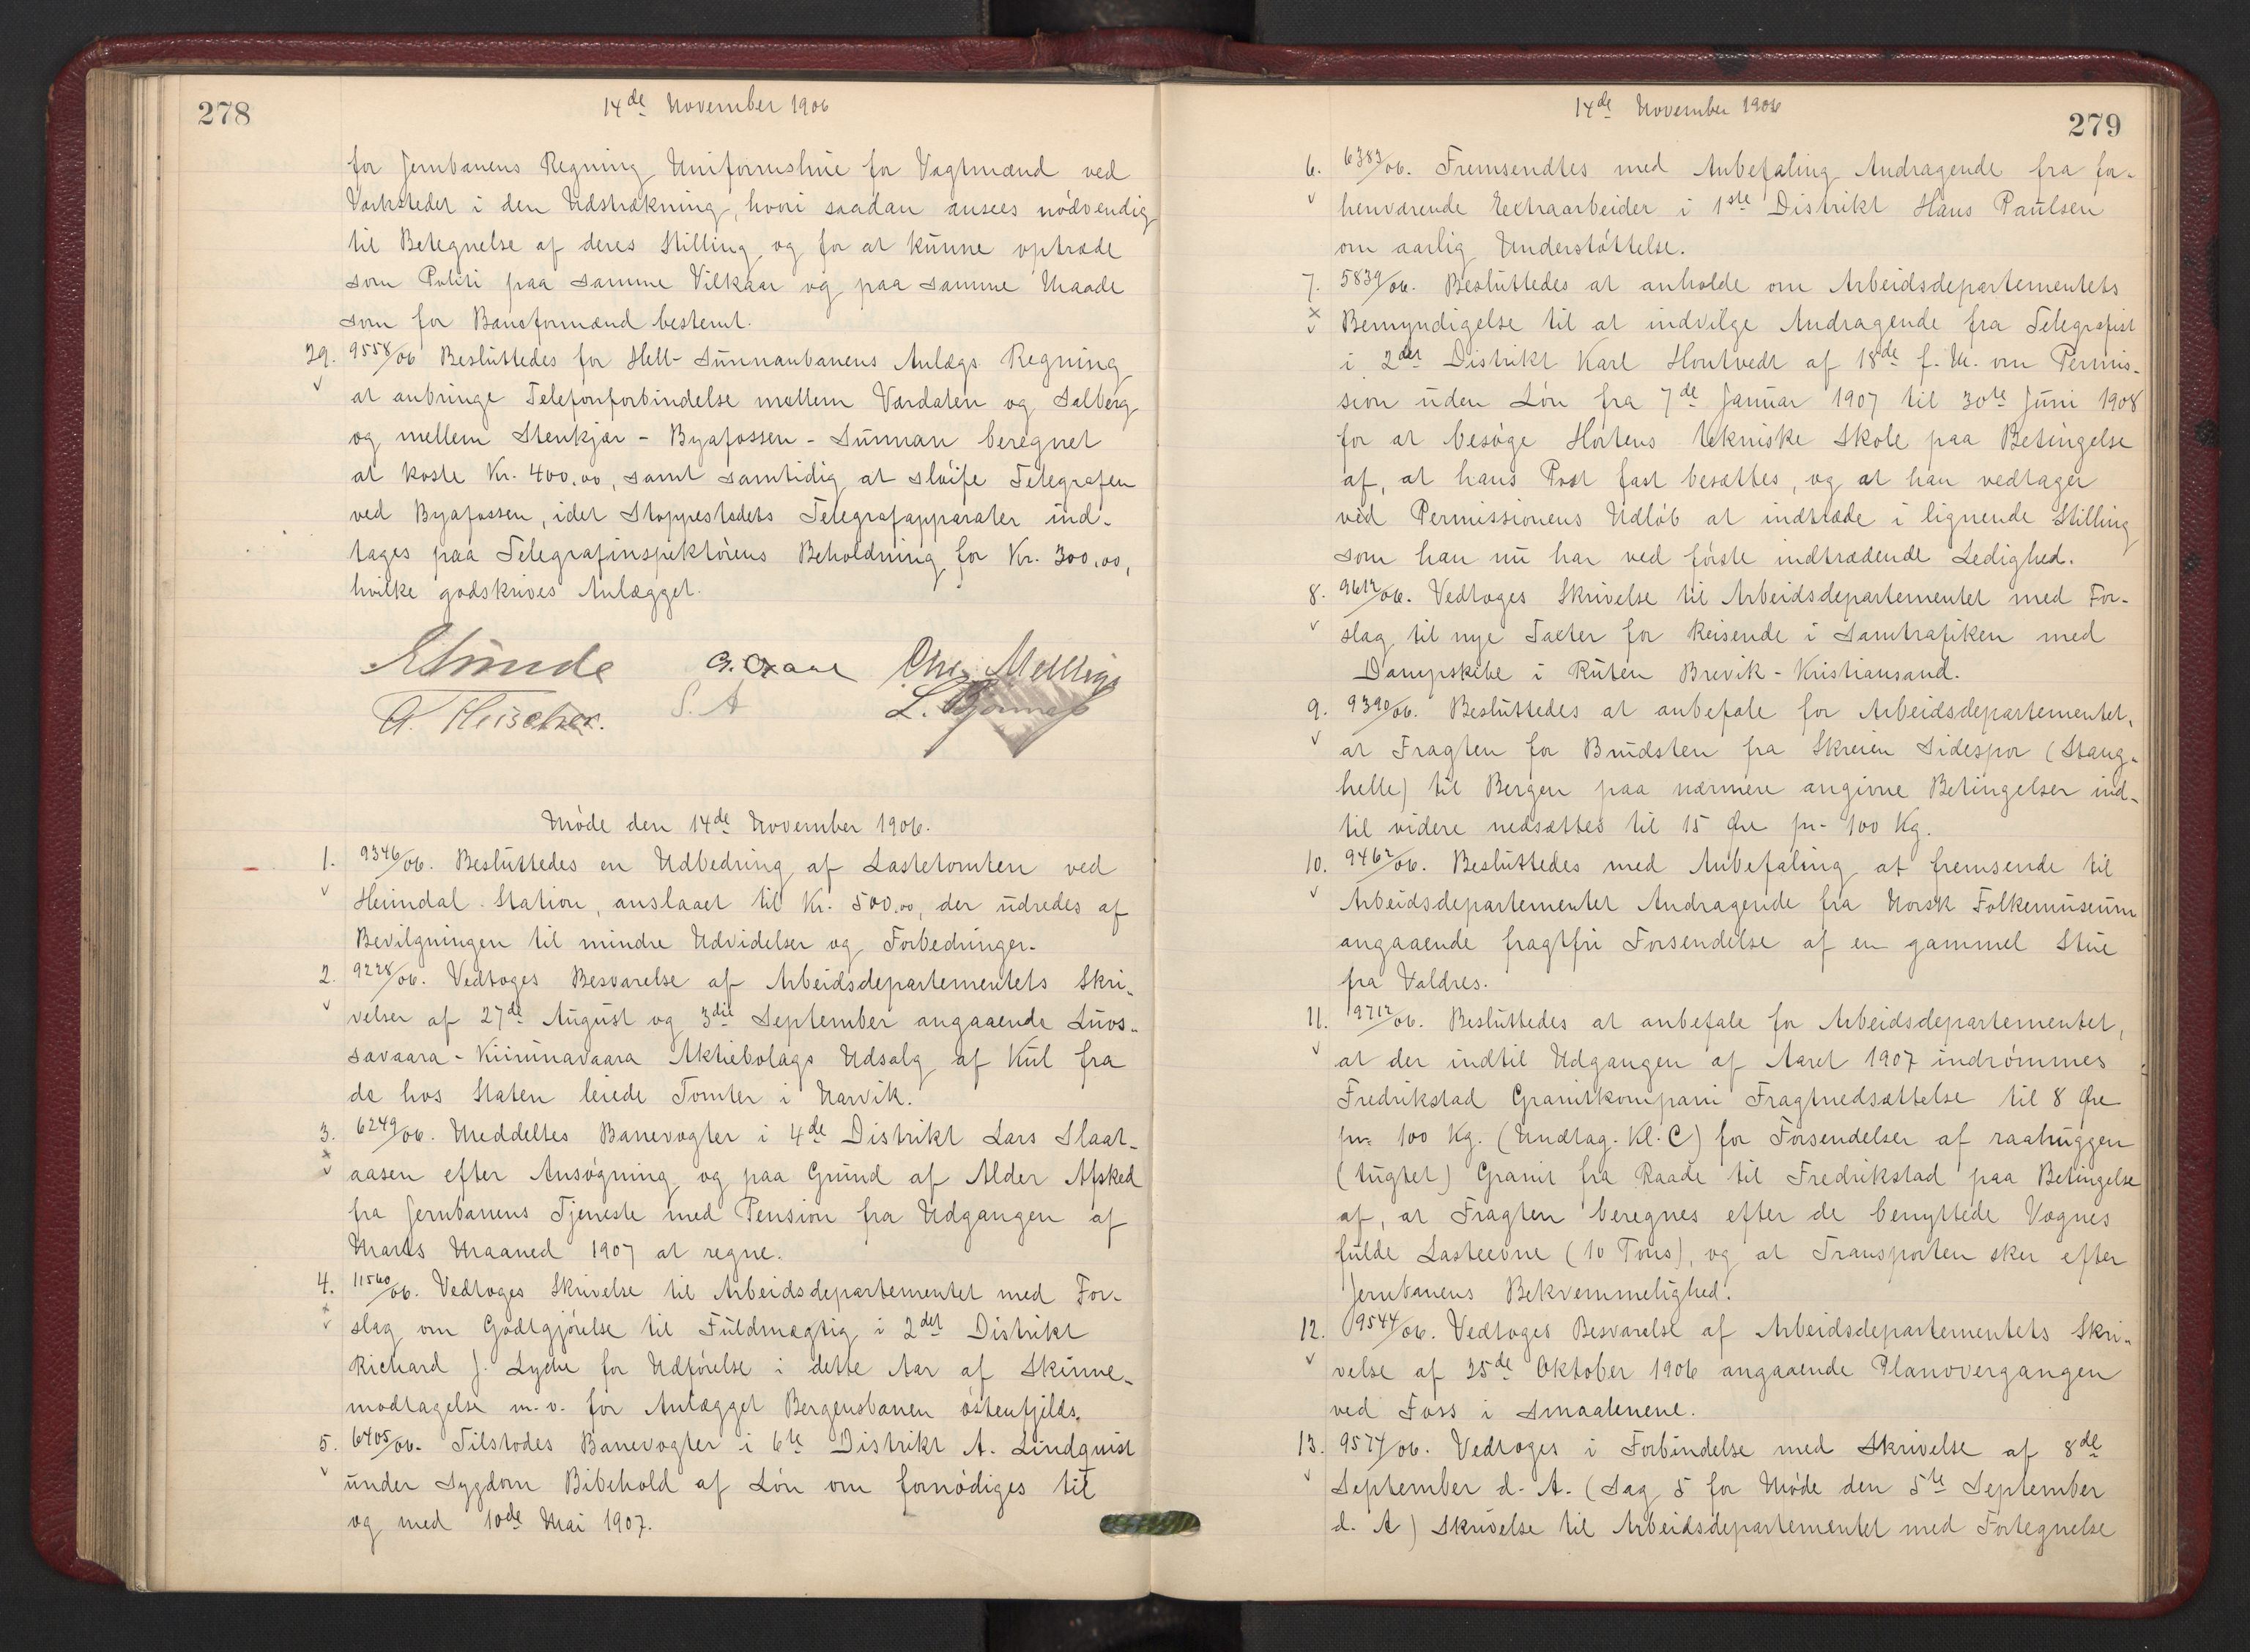 278
14de November 1906
for Jernbanens Regning Uniformshue for Vagtmænd ved
Værksteder i den Udstrækning, hvori saadan ansees nödvendig
til Betegnelse af deres Stilling og for at kunne optræde
som Politi paa samme Vilkaar og paa samme Maade
som for Baneformænd bestemt.
29. 9558/06 Besluttedes for Hell-Sunnanbanens Anlægs Regning
at anbringe Telefonforbindelse mellem Værdalen og Salberg
og mellem Stenkjær - Byafossen - Sunnan beregnet
at koste Kr. 400.00, samt samtidig at slöife Telegrafen
ved Byafossen, idet Stoppestedets Telegrafapparater ind-
tages paa Telegrafinspektörens Beholdning for Kr. 300.00,
hvilke godskrives Anlægget.
G. Fleischer.
S. A
Möde den 14de November 1906.
1. 9346/06. Besluttedes en Udbedring af Lastetomten ved
Heimdal Station, anslaaet til Kr. 500.00, der udredes af
Bevilgningen til mindre Udvidelser og Forbedringer.
2. 9228/06. Vedtoges Besvarelse af Arbeidsdepartementets Skri-
velser af 27de August og 3die September angaaende Luos-
savaara - Kiirunavaara Aktiebolags Udsalg af Kul fra
de hos Staten leiede Tomter i Narvik.
3. 6249/06. Meddeltes Banevogter i 4de Distrikt Lars Slaat-
aasen efter Ansögning og paa Grund af Alder Afsked
fra Jernbanens Tjeneste med Pension fra Udgangen af
Marts Maaned 1907 at regne.
4. 11560/06. Vedtoges Skrivelse til Arbeidsdepartementet med For-
slag om Godtgjörelse til Fuldmægtig i 2det Distrikt
Richard J. Lyche for Udförelse i dette Aar af Skinne-
modtagelse m.v. for Anlægget Bergensbanen östenfjelds.
5. 6405/06. Tilstodes Banevogter i 6te Distrikt A. Lindquist
under Sygdom Bibehold af Lön om fornödiges til
og med 10de Mai 1907.
14de November 1906
279
6. 6383/06. Fremsendtes med Anbefaling Andragende fra for-
henværende Extraarbeider i 1ste Distrikt Hans Paulsen
om aarlig Understöttelse.
7. 5839/06. Besluttedes at anholde om Arbeidsdepartementets
Bemyndigelse til at indvilge Andragende fra Telegrafist
i 2det Distrikt Karl Hontvedt af 18de f. M. om Permis-
sion uden Lön fra 7de Januar 1907 til 30te Juni 1908
for at besöge Hortens tekniske Skole paa Betingelse
af, at hans Post fast besættes, og at han vedtager
ved Permissionens Udlöb at indtræde i lignende Stilling
som han nu har ved förste indtrædende Ledighed.
8. 9612/06. Vedtoges Skrivelse til Arbeidsdepartementet med For-
slag til nye Taxter for Reisende i Samtrafiken med
Dampskibe i Ruten Brevik - Kristiansand.
9. 9390/06. Besluttedes at anbefale for Arbeidsdepartementet,
at Fragten for Brudsten fra Skreien Sidespor (Stang-
helle) til Bergen paa nærmere angivne Betingelser ind-
til videre nedsættes til 15 Øre pr. 100 Kg.
10. 9462/06. Besluttedes med Anbefaling at fremsende til
Arbeidsdepartementet Andragende fra Norsk Folkemuseum
angaaende fragtfri Forsendelse af en gammel Stue
fra Valdres.
11. 9712/06. Besluttedes at anbefale for Arbeidsdepartementet,
at der indtil Udgangen af Aaret 1907 indrömmes
Fredrikstad Granitkompani Fragtnedsættelse til 8 Øre
pr. 100 Kg. (Undtag. Kl. C) for Forsendelser af raahuggen
(tugtet) Granit fra Raade til Fredrikstad paa Betingelse
af, at Fragten beregnes efter de benyttede Vognes
fulde Lasteevne (10 Tons), og at Transporten sker efter
Jernbanens Bekvemmelighed.
12. 9544/06. Vedtoges Besvarelse af Arbeidsdepartementets Skri-
velse af 25de Oktober 1906 angaaende Planovergangen
ved Foss i Smaalenene.
13. 9574/06. Vedtoges i Forbindelse med Skrivelse af 8de
September d. A. (Sag 5 for Möde den 5te September
d. A) Skrivelse til Arbeidsdepartementet med Fortegnelse